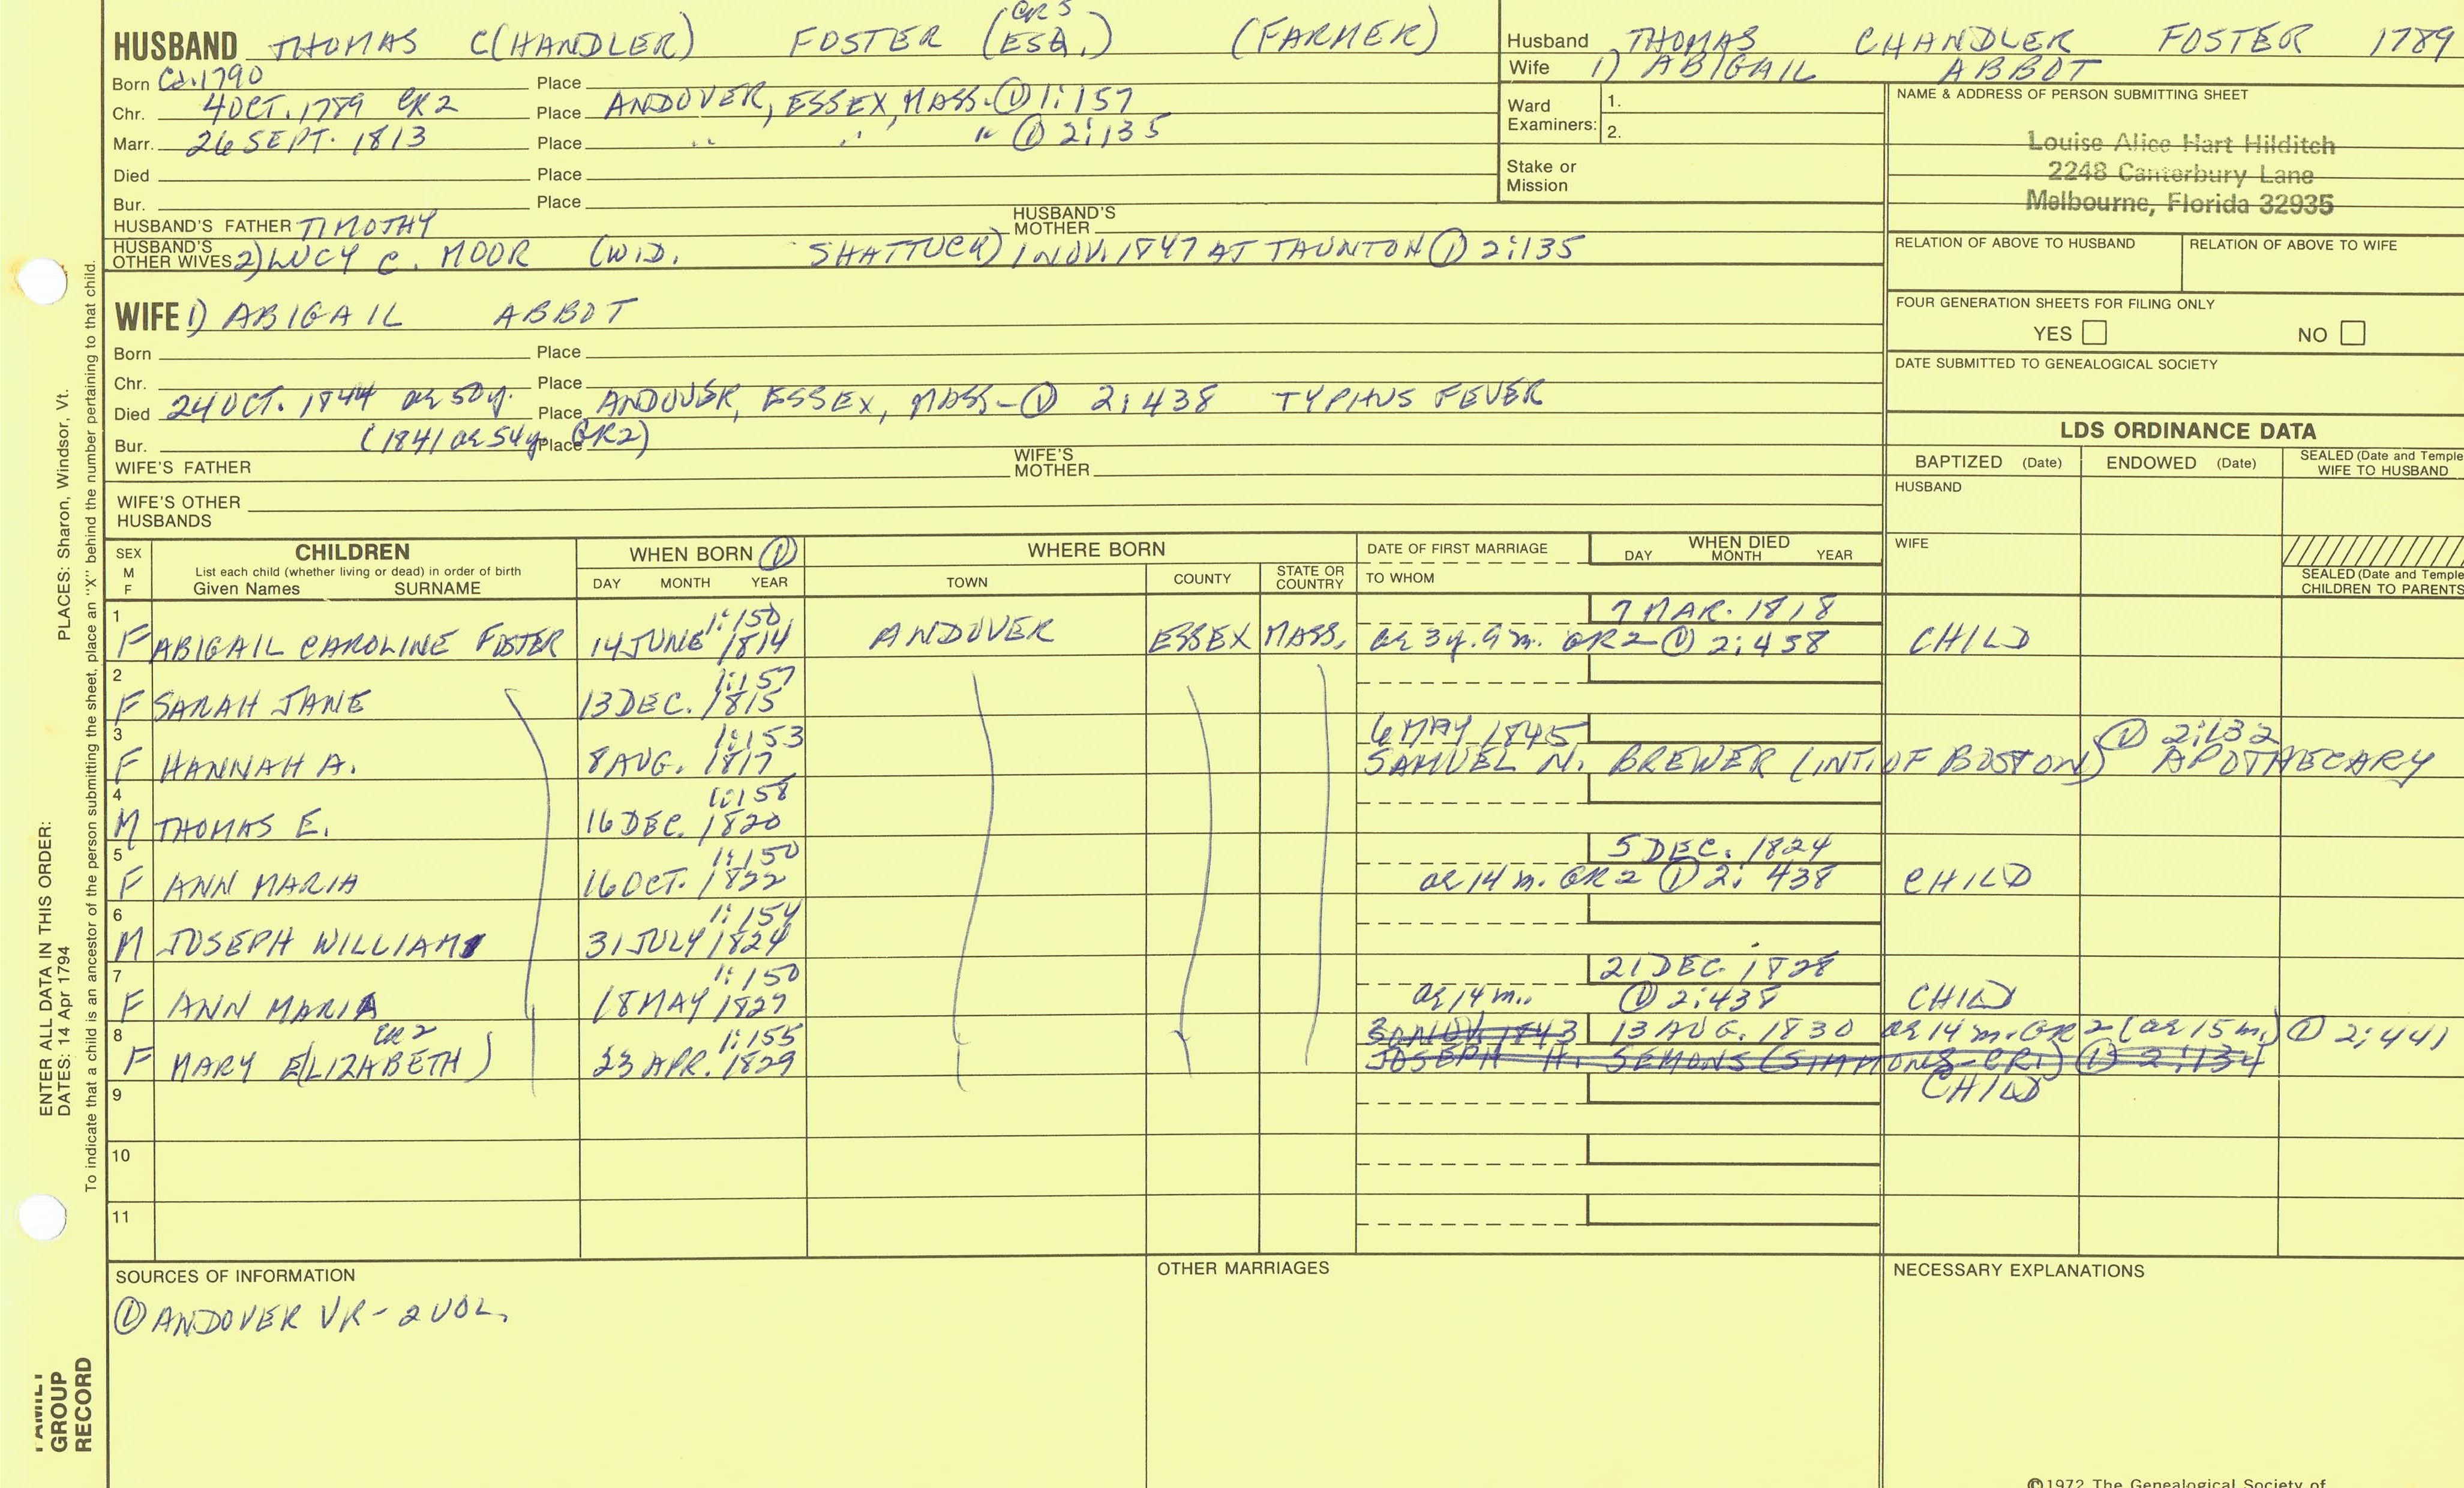 HUSBAND THOMAS C(HANDLER) FOSTER (ESQ. CR5) (FARMER)
Born Ca.1790 Place
Chr. 4 OCT. 1789 CR2 Place ANDOVER, ESSEX, MASS-① 1:157
Marr. 26 SEPT. 1813 Place " " " ① 2:135
Died Place
Bur. Place
HUSBAND'S FATHER TIMOTHY HUSBAND'S MOTHER
HUSBAND'S OTHER WIVES 2) LUCY C. MOOR (WID. SHATTUCK) 1 NOV. 1847 AT TAUNTON ① 2:135
WIFE 1) ABIGAIL ABBOT
Born Place
Chr. Place
Died 24 OCT. 1844 ae 50y. Place ANDOVER, ESSEX, MASS-① 2:438 TYPHUS FEVER
Bur. (1841 ae 54y. GR2) Place
WIFE'S FATHER WIFE'S MOTHER
WIFE'S OTHER HUSBANDS
Husband THOMAS CHANDLER FOSTER 1789
Wife 1) ABIGAIL ABBOT
Ward Examiners: 1.
2.
Stake or Mission
NAME & ADDRESS OF PERSON SUBMITTING SHEET
Louise Alice Hart Hilditch
2248 Canterbury Lane
Melbourne, Florida 32935
RELATION OF ABOVE TO HUSBAND RELATION OF ABOVE TO WIFE
FOUR GENERATION SHEETS FOR FILING ONLY
YES NO
DATE SUBMITTED TO GENEALOGICAL SOCIETY
LDS ORDINANCE DATA
BAPTIZED (Date) ENDOWED (Date) SEALED (Date and Temple WIFE TO HUSBAND
HUSBAND
WIFE
SEALED (Date and Temple
CHILDREN TO PARENTS
SEX M F CHILDREN WHEN BORN ① WHERE BORN DATE OF FIRST MARRIAGE WHEN DIED
List each child (whether living or dead) in order of birth DAY MONTH YEAR
Given Names SURNAME DAY MONTH YEAR TOWN COUNTY STATE OR COUNTRY TO WHOM
1 1:150 7 MAR. 1818
F ABIGAIL CAROLINE FOSTER 14 JUNE 1814 ANDOVER ESSEX MASS. ae 3y. 9m. GR2 ① 2:438 CHILD
2 1:157
F SARAH JANE 13 DEC. 1815
3 1:153 6 MAY 1845 ① 2:132
F HANNAH A. 8 AUG. 1817 SAMUEL N. BREWER (INT. OF BOSTON) APOTHECARY
4 1:158
M THOMAS E. 16 DEC. 1820
5 1:150 5 DEC. 1824
F ANN MARIA 16 OCT. 1822 ae 14 m. GR2 ① 2:438 CHILD
6 1:154
M JOSEPH WILLIAM 31 JULY 1824
7 1:150 21 DEC. 1828
F ANN MARIA 18 MAY 1827 ae 14 m. ① 2:438 CHILD
8 CR2 1:155 30 NOV. 1843 13 AUG. 1830 ae 14 m. GR2 (ae 15 m.) ① 2:441
F MARY E(LIZABETH) 23 APR. 1829 JOSEPH H. SEMONS (SIMMONS-CR1) ① 2:134
CHILD
9
10
11
SOURCES OF INFORMATION OTHER MARRIAGES NECESSARY EXPLANATIONS
① ANDOVER VR-2 VOL.
©1972 The Genealogical Society of
PLACES: Sharon, Windsor, Vt.
ENTER ALL DATA IN THIS ORDER:
DATES: 14 Apr 1794
To indicate that a child is an ancestor of the person submitting the sheet, place an "X" behind the number pertaining to that child.
FAMILY
GROUP
RECORD